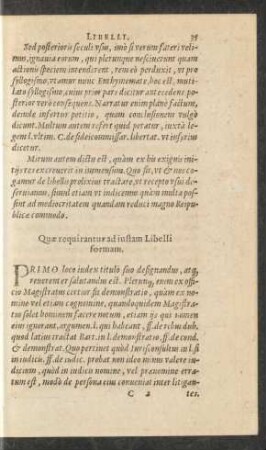 LIBELLI. 35
Sed posterioris seculi vsus, imò si verum fateri velimus, ignauia eorum, qui plerunque nesciuerunt quam
actionis speciem intenderent, rem eò perduxit, vt pro
syllogismo, vtamur nunc Enthymemate, hoc est, mutilato syllogismo, cuius prior pars dicitur antecedens
posterior verò consequens. Narratur enim planè factum,
deinde infertur petitio, quam conclusionem vulgò
dicunt. Multum autem refert quid petatur, iuxtà legem l. vltim. C. de fideicommissar. libertat. vt inferius
dicetur.
Mirum autem dictu est, quàm ex his exiguis initijs res excreuerit in immensum. Quo fit, vt & nos cogamur de libellis prolixius tractare, vt recepto vsui deseruiamus, simul etiam vt indicemus quàm multa possint ad mediocritatem quandam reduci magno Reipublicæ commodo.
Quæ requirantur ad iustam Libelli
formam.
PRIMO loco iudex titulò suo designandus, atq́;
reuerenter salutandus est. Plerunq́; enim ex officio Magistratus certus fit demonstratio, quàm ex nomine vel etiam cognomine, quandoquidem Magistratus solet hominem facere notum, etiam ijs qui nomen
eius ignorant, argumen. l. qui habebat, ff. de rebus dub.
quod latius tractat Bart. in l. demonstratio, ff. de cond.
& demonstrat. Quo pertinet quòd Iurisconsultus in l. si
in iudicis, ff. de iudic. probat non ideo minus valere iudicium, quòd in iudicis nomine, vel prænomine erratum est, modò de persona eius conueniat inter litigan-
C 2 tes.